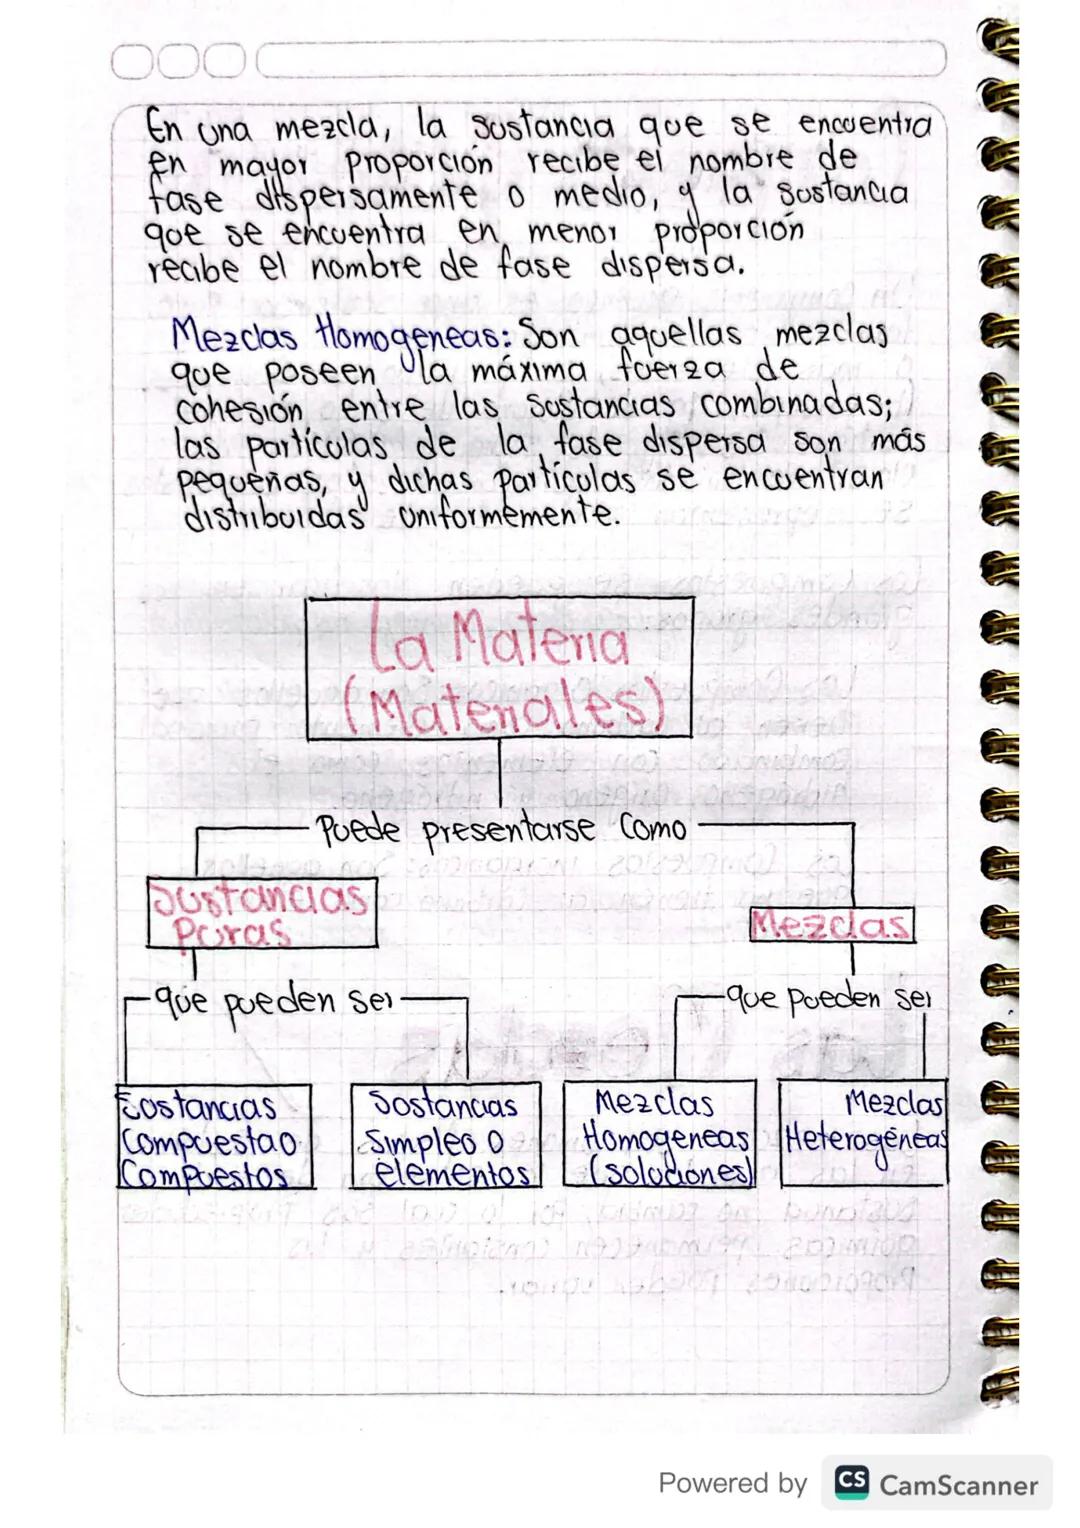 En una mezcla, la sustancia que se encuentra
en mayor proporción recibe el nombre de
fase dispersamente o medio, y la sustancia
que se encuentra en menor proporción
recibe el nombre de fase dispersa.
Mezclas Homogeneas: Son aquellas mezclas
que poseen la máxima fuerza de
cohesión entre las sustancias combinadas;
las partículas de la fase dispersa son más
pequeñas, y dichas partículas se encuentran
distribuidas uniformemente.
La Materia
(Materiales)
Puede presentarse como
Sustancias
Puras
Mezclas
que pueden ser
que pueden ser
Sustancias
Compuesta o
Compuestos
Sustancias
Simples o
elementos
Mezclas
Homogeneas
(soluciones)
Mezclas
Heterogéneas
Powered by CS CamScanner